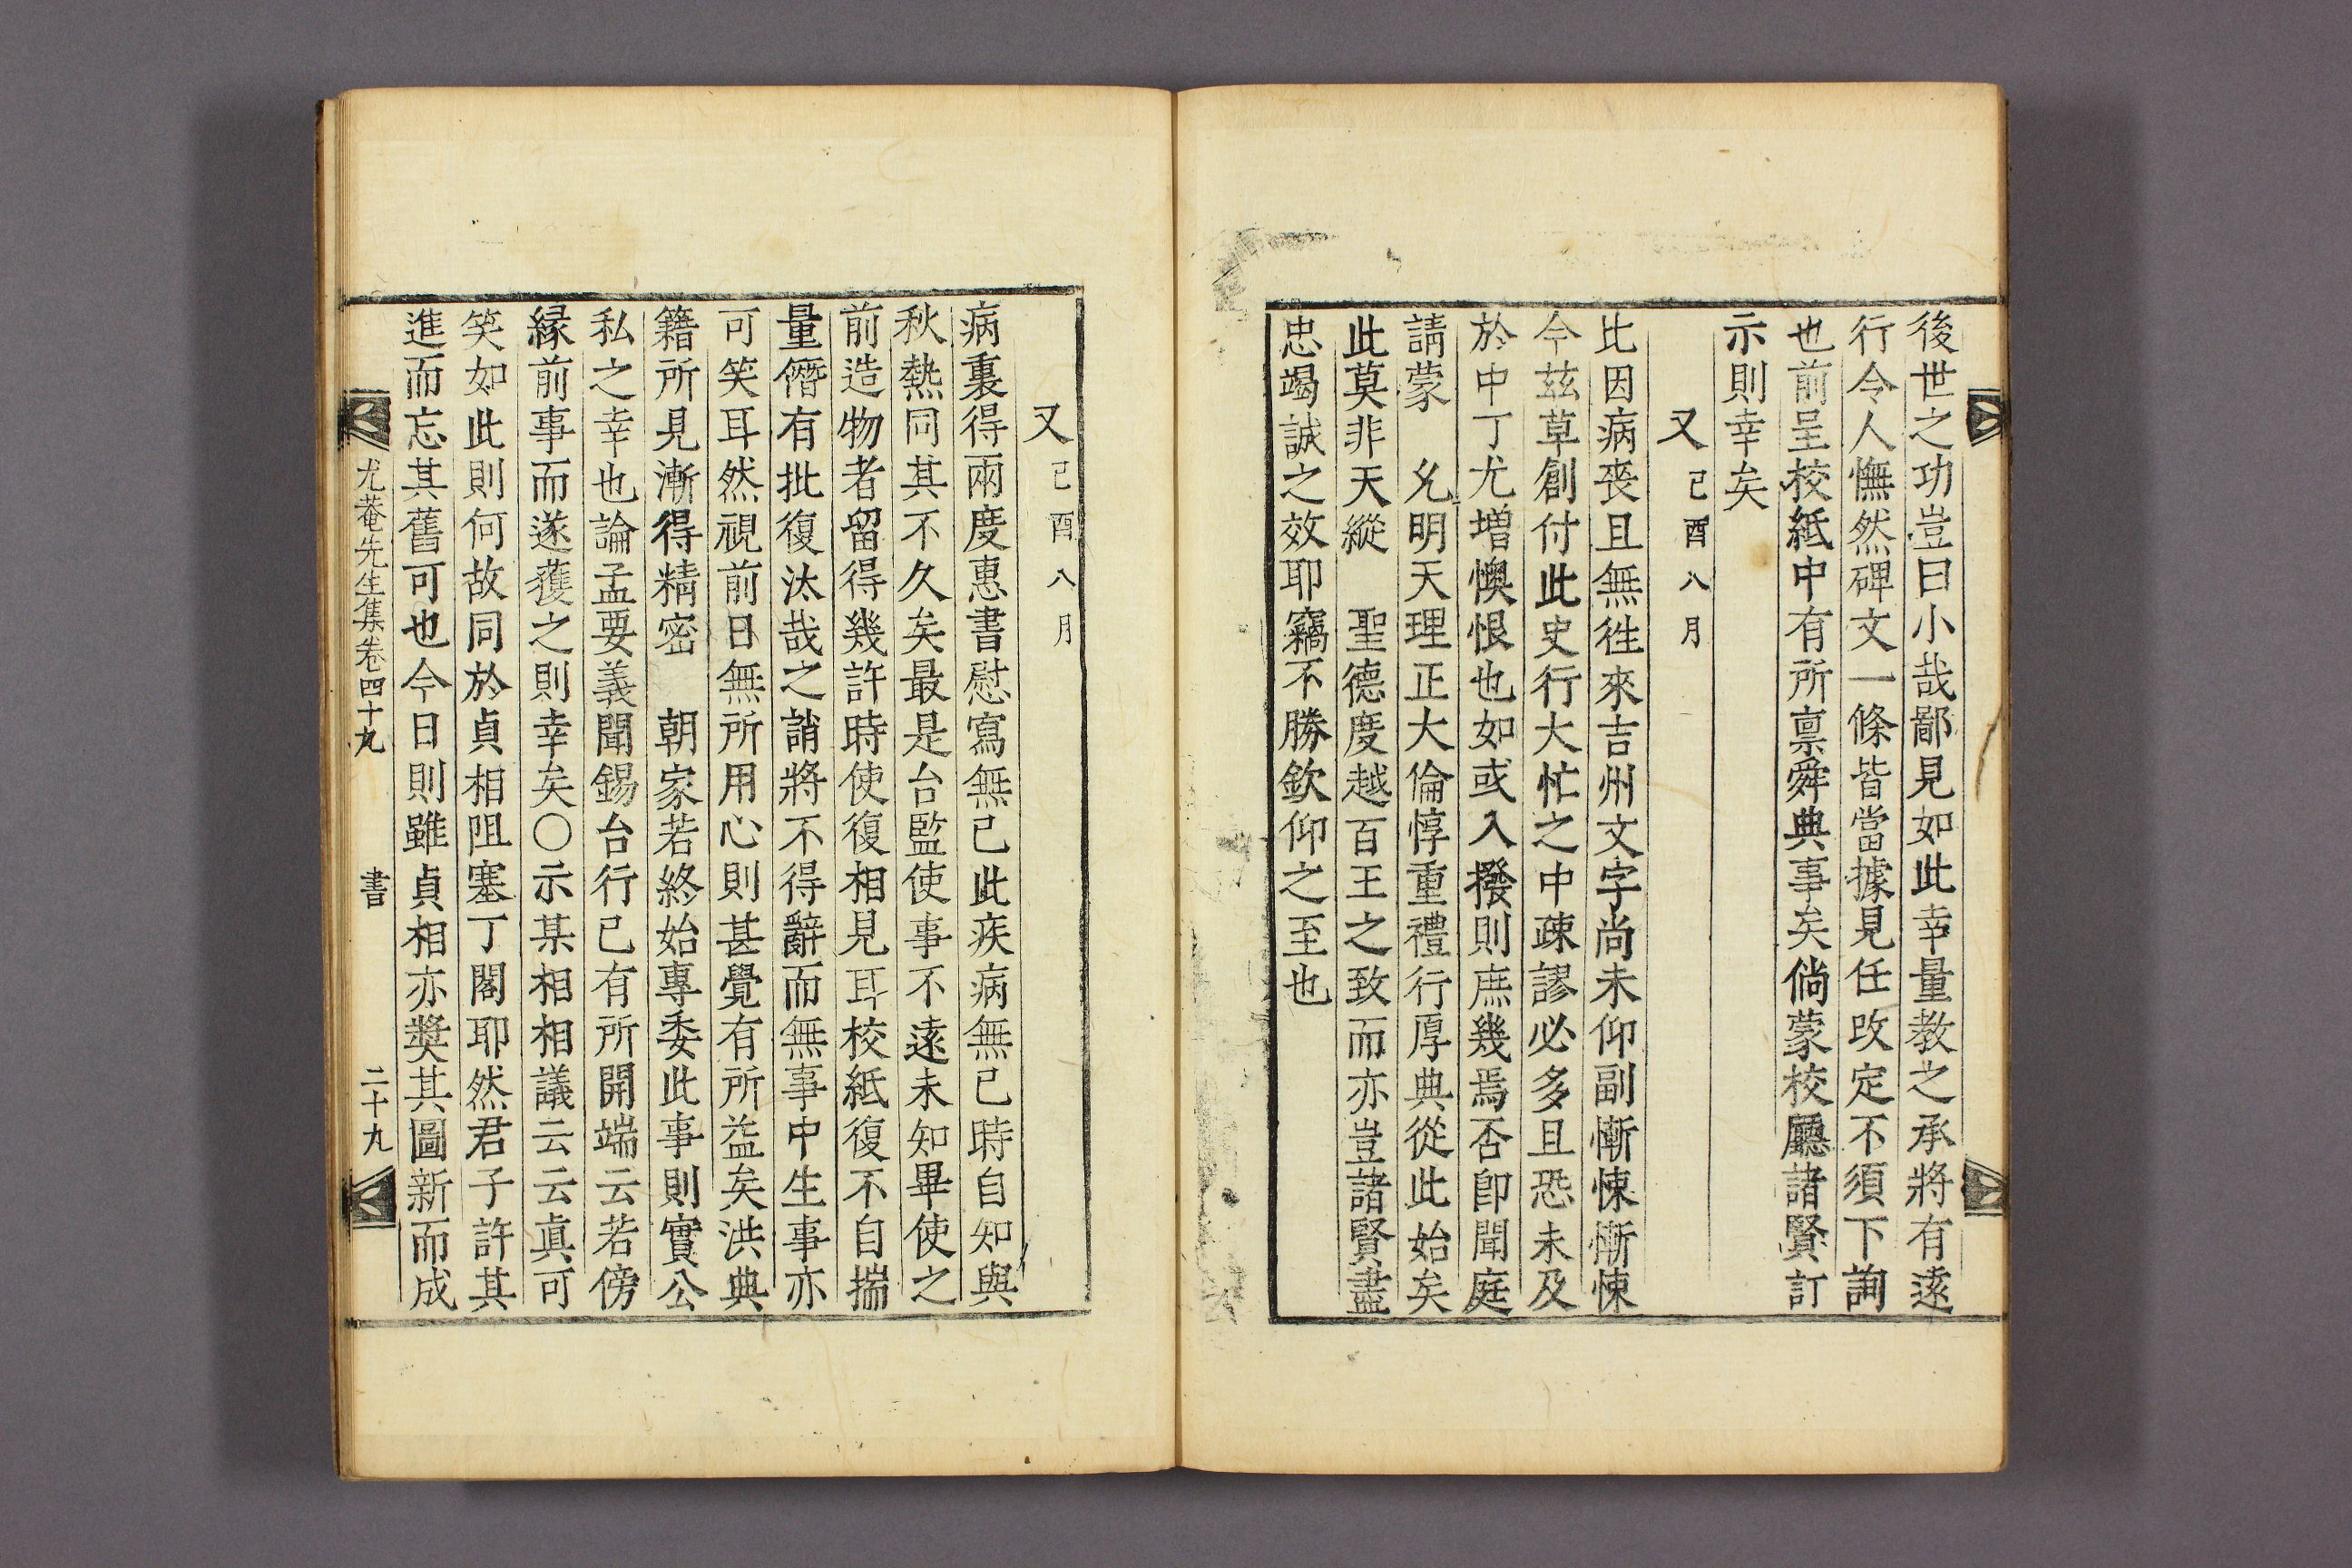 後世之功豈曰小哉鄙見如此幸量教之承將有遠
行令人憮然碑文一條皆當據見任改定不須下詢
也前呈校紙中有所稟舜典事矣倘蒙校廳諸賢訂
示則幸矣
又 己酉八月
比因病喪且無徃來吉州文字尚未仰副慚悚慚悚
今玆草創付此史行大忙之中疎謬必多且恐未及
於中丁尤增懊恨也如或入撥則庶幾焉否卽聞庭
請蒙 允明天理正大倫惇重禮行厚典從此始矣
此莫非天縱 聖德度越百王之致而亦豈諸賢盡
忠竭誠之效耶竊不勝欽仰之至也
又 己酉八月
病裏得兩度惠書慰寫無已此疾病無已時自知與
秋熱同其不久矣最是台監使事不遠未知畢使之
前造物者留得幾許時使復相見耳校紙復不自揣
量僭有批復汰哉之誚將不得辭而無事中生事亦
可笑耳然視前日無所用心則甚覺有所益矣洪典
籍所見漸得精密 朝家若終始專委此事則實公
私之幸也論孟要義聞錫台行已有所開端云若傍
緣前事而遂蒦之則幸矣○示某相相議云云眞可
笑如此則何故同於貞相阻塞丁閣耶然君子許其
進而忘其舊可也今日則雖貞相亦奬其圖新而成
尤菴先生集卷四十九 書 二十九